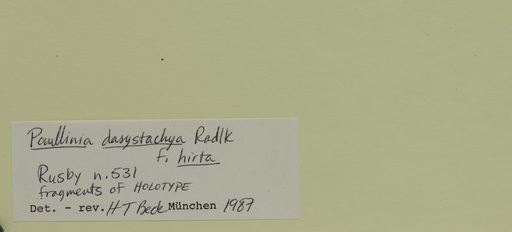 Paullinia dasystachya Radlk
f. hirta
Rusby n.531
fragments of HOLOTYPE
Det. - rev. H T Beck München 1987